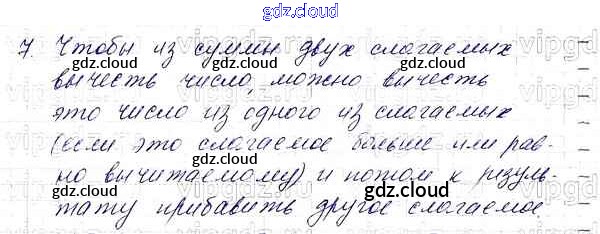 gdz.cloud
7. Чтобы из суммы двух слагаемых
gdz.cloud
вычесть число, можно вычесть
gdz.cloud gdz.cloud
это число из одного из слагаемых
gdz.cloud
(если это слагаемое больше или рав-
gdz.cloud gdz.cloud
но вычитаемому) и потом к резуль-
gdz.cloud gdz.cloud
тату прибавить другое слагаемое.
gdz.cloud